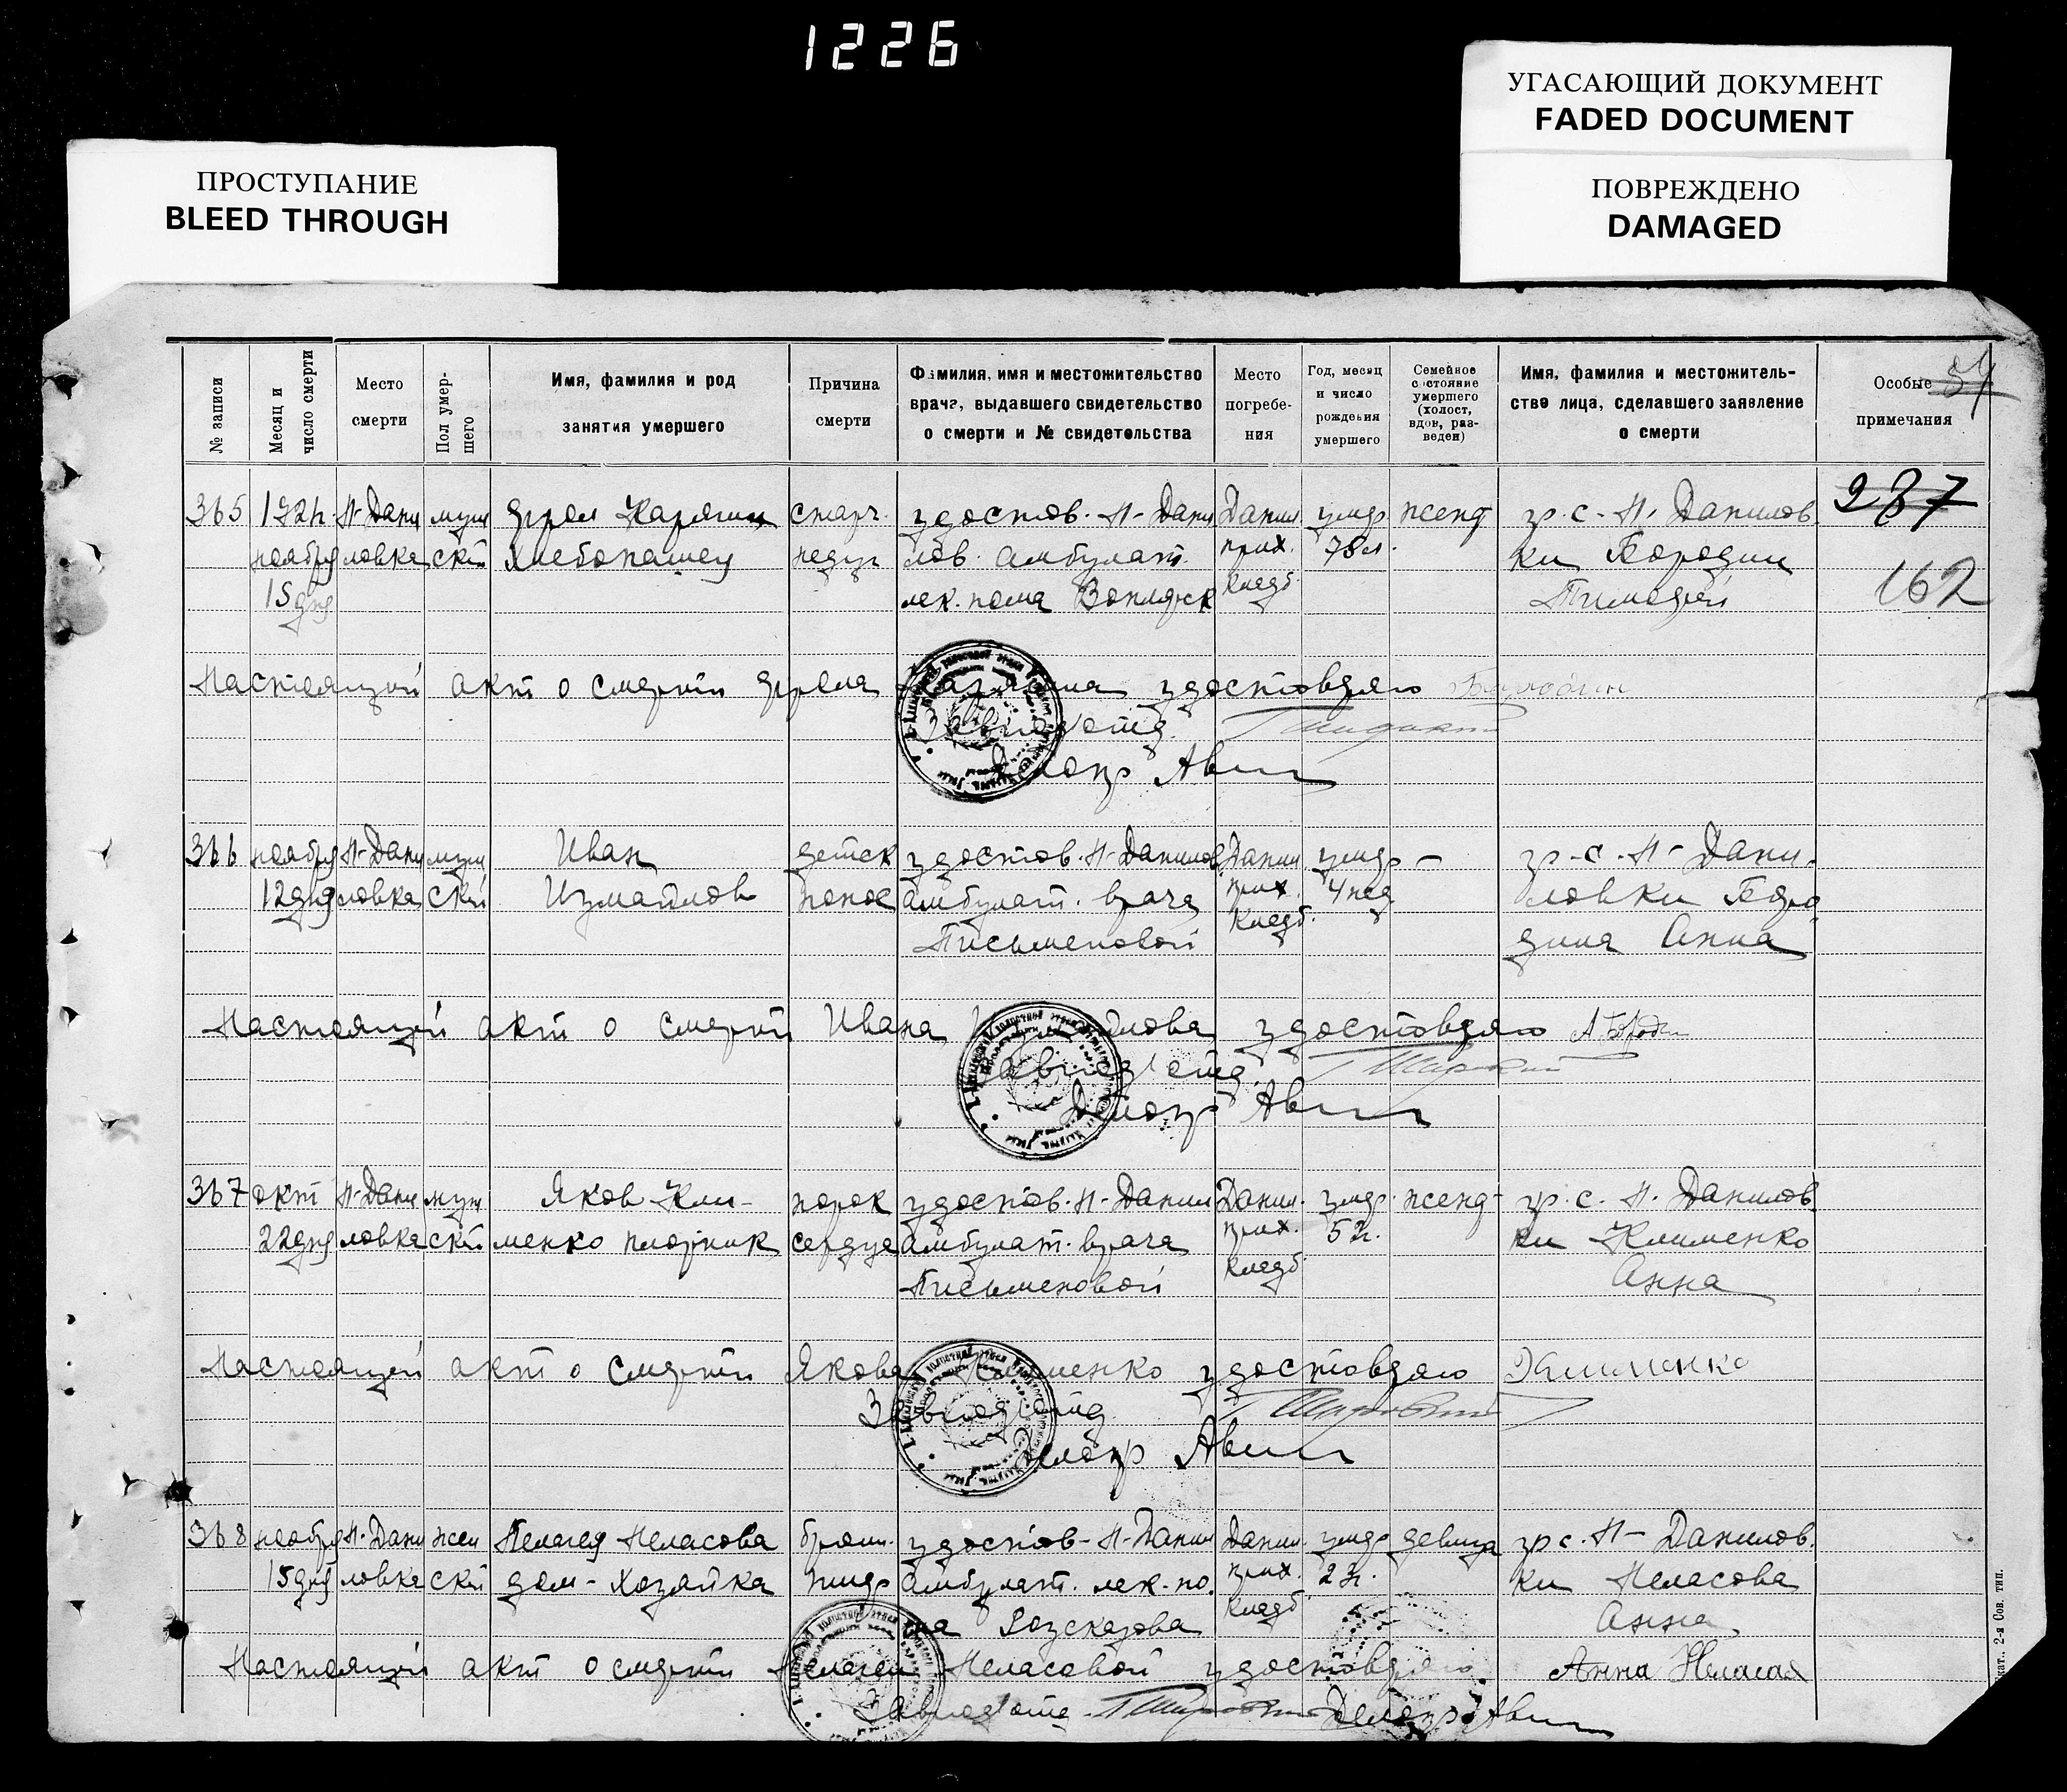 1226
УГАСАЮЩИЙ ДОКУМЕНТ
FADED DOCUMENT
ПОВРЕЖДЕНО
DAMAGED
ПРОСТУПАНИЕ
BLEED THROUGH
№ записи
Месяц и
число смерти
Место
смерти
Пол умер-
шего
Имя, фамилия и род
занятия умершего
Причина
смерти
Фамилия, имя и местожительство
врача, выдавшего свидетельство
о смерти и № свидетельства
Место
погребе-
ния
Год, месяц
и число
рождения
умершего
Семейное
состояние
умершего
(холост,
вдов, раз-
веден)
Имя, фамилия и местожитель-
ство лица, сделавшего заявление
о смерти
Особые
примечания
287
162
365
ноября
15 дня
Н-Дани
ловка
муж
ской
Хлебопашец
старч.
недуг
удостов. Н-Дани
лов. амбулат.
лек. пома
Данил.
прих.
кладб.
умер
78 л.
женат
гр. с. Н. Данилов
ки Бородин
Тимофей
Настоящий акт о смерти удостоверяю
Завподотд.
Делопр
366
ноября
12 дня
Н-Дани
ловка
муж
ской
Иван
Измайлов
детск
понос
удостов. Н-Данилов
амбулат. врача
Письменовой
Данил.
прих.
кладб.
умер
4 нед
–
гр. с. Н-Дани
ловки Боро
дина Анна
Настоящий акт о смерти Ивана Измайлова удостоверяю
Завподотд.
Делопр
367
окт
22 дня
Н-Дани
ловка
муж
ской
Яков Кли-
менко плотник
порок
сердца
удостов. Н-Данил
амбулат. врача
Письменовой
Данил.
прих.
кладб.
умер
52 г.
женат
гр. с. Н. Данилов
ки Клименко
Анна
Настоящий акт о смерти Якова Клименко удостоверяю Клименко
Завподотд.
Делопр
368
ноября
15 дня
Н-Дани
ловка
жен
ской
Пелагея Неласова
дом-хозяйка
брюш.
тиф
удостов-Н-Данил
амбулат. лек. по.
ма
Данил.
прих.
кладб.
умер
девица
гр с. Н-Данилов.
ки Неласова
Анна
Настоящий акт о смерти Пелагеи Неласовой удостоверяю Анна
Завподотд. Делопр
2-я Сов. тип.